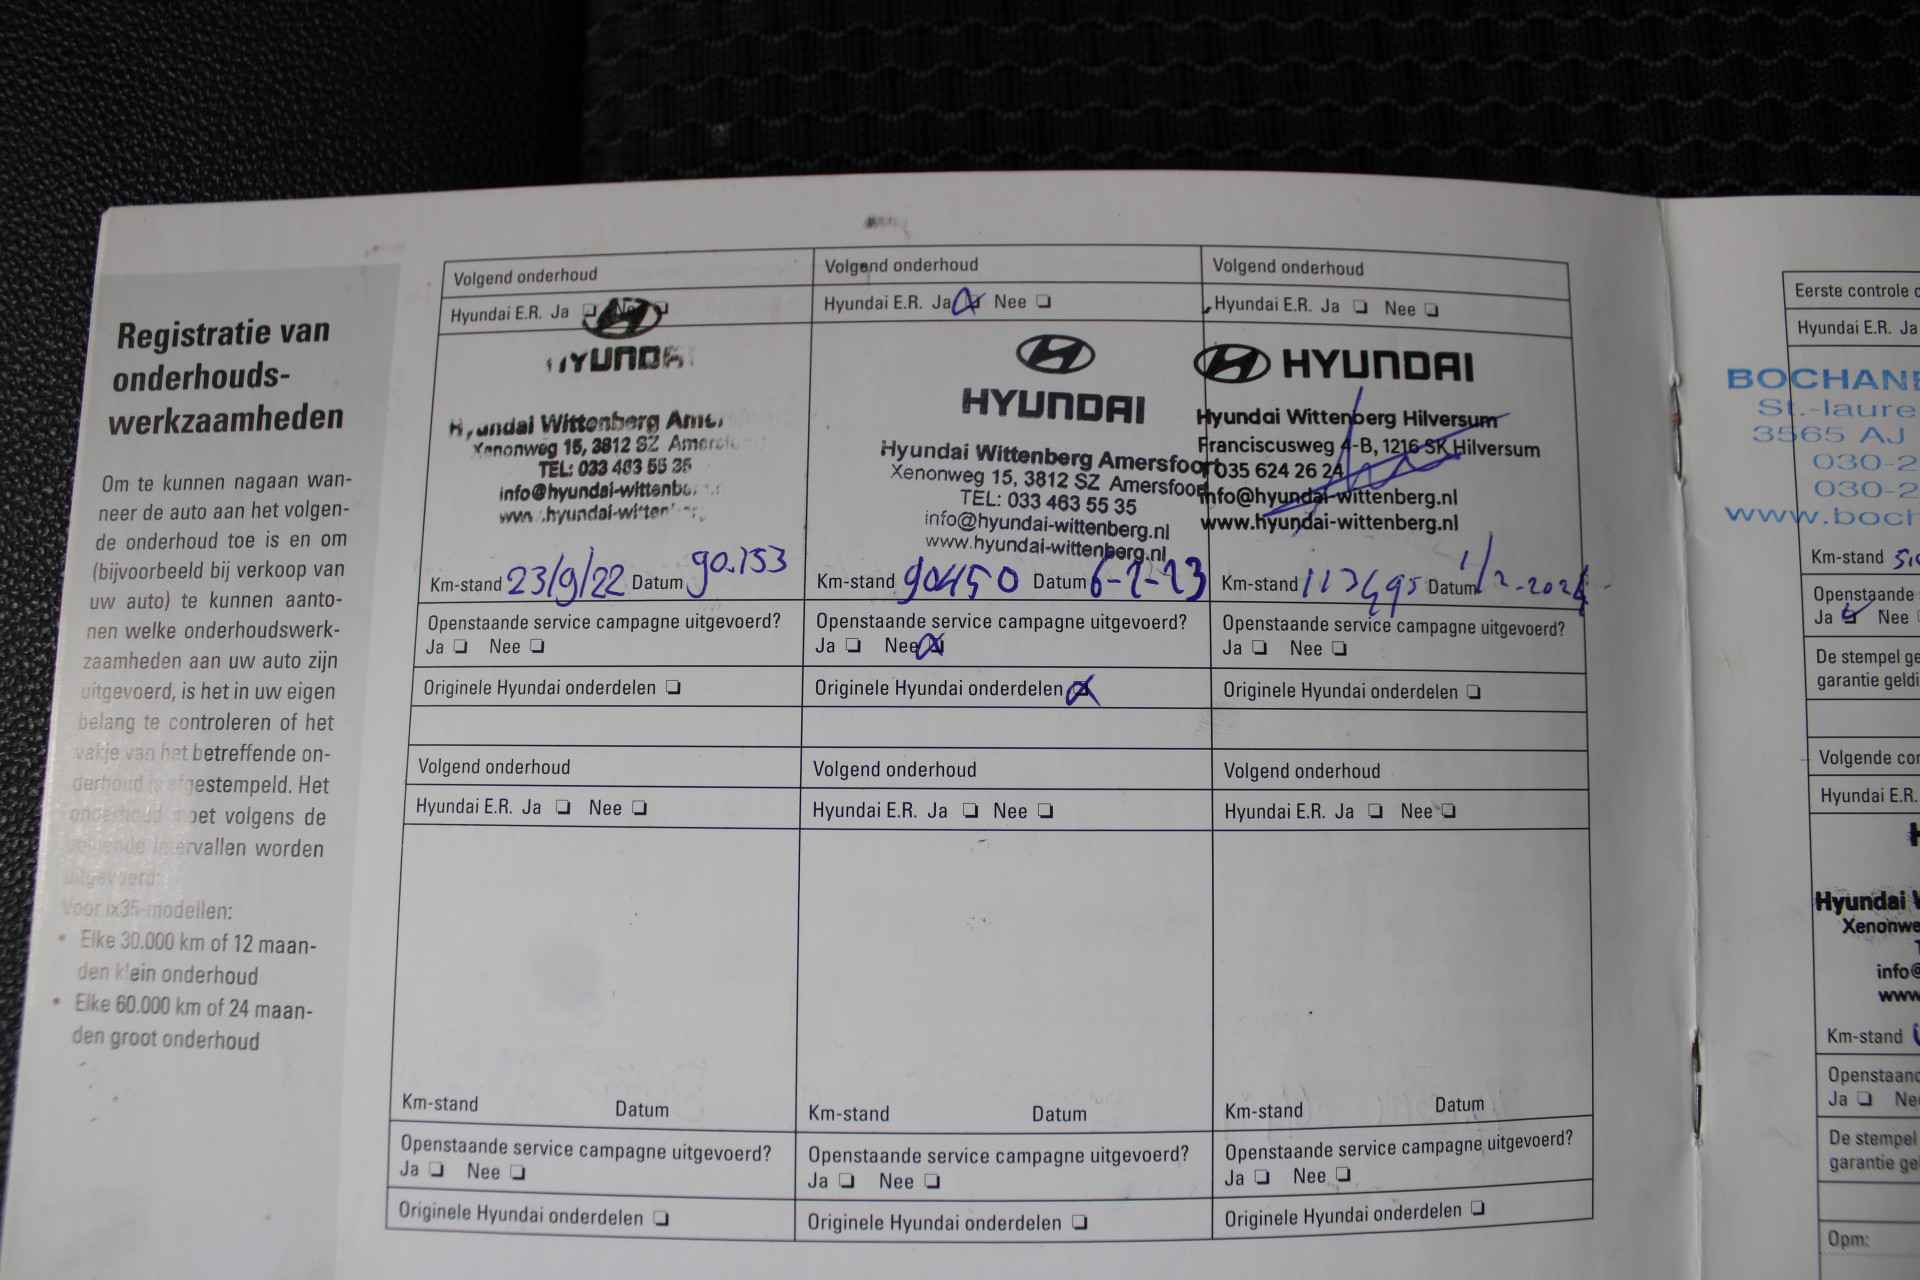 Registratie van
onderhouds-
werkzaamheden
Om te kunnen nagaan wan-
neer de auto aan het volgen-
de onderhoud toe is en om
(bijvoorbeeld bij verkoop van
uw auto) te kunnen aanto-
nen welke onderhoudswerk-
zaamheden aan uw auto zijn
uitgevoerd, is het in uw eigen
belang te controleren of het
vakje van het betreffende on-
derhoud is afgestempeld. Het
onderhoud moet volgens de
volgende intervallen worden
uitgevoerd:
Voor ix35-modellen:
• Elke 30.000 km of 12 maan-
den klein onderhoud
• Elke 60.000 km of 24 maan-
den groot onderhoud
Volgend onderhoud
Hyundai E.R. Ja Nee
HYUNDAI
Hyundai Wittenberg Amer
Xenonweg 15, 3812 SZ Amersfoort
TEL: 033 463 55 35
info@hyundai-wittenb
www.hyundai-witten
Km-stand 23/9/22 Datum 90.153
Openstaande service campagne uitgevoerd?
Ja Nee
Originele Hyundai onderdelen
Volgend onderhoud
Hyundai E.R. Ja Nee
HYUNDAI
Hyundai Wittenberg Amersfoort
Xenonweg 15, 3812 SZ Amersfoort
TEL: 033 463 55 35
info@hyundai-wittenberg.nl
www.hyundai-wittenberg.nl
Km-stand 90450 Datum 6-2-23
Openstaande service campagne uitgevoerd?
Ja Nee
Originele Hyundai onderdelen
Volgend onderhoud
Hyundai E.R. Ja Nee
HYUNDAI
Hyundai Wittenberg Hilversum
Franciscusweg 4-B, 1216 SK Hilversum
035 624 26 24
info@hyundai-wittenberg.nl
www.hyundai-wittenberg.nl
Km-stand 113495 Datum 1/2-2024
Openstaande service campagne uitgevoerd?
Ja Nee
Originele Hyundai onderdelen
Volgend onderhoud
Hyundai E.R. Ja Nee
Km-stand Datum
Openstaande service campagne uitgevoerd?
Ja Nee
Originele Hyundai onderdelen
Volgend onderhoud
Hyundai E.R. Ja Nee
Km-stand Datum
Openstaande service campagne uitgevoerd?
Ja Nee
Originele Hyundai onderdelen
Volgend onderhoud
Hyundai E.R. Ja Nee
Km-stand Datum
Openstaande service campagne uitgevoerd?
Ja Nee
Originele Hyundai onderdelen
Eerste controle
Hyundai E.R. Ja
BOCHANE
St.-laure
3565 AJ
030-2
030-2
www.boch
Km-stand
Openstaande
Ja Nee
De stempel ge
garantie geldi
Volgende con
Hyundai E.R.
H
Hyundai W
Xenonwe
T
info@
www
Km-stand
Openstaand
Ja Nee
De stempel
garantie gel
Opm: